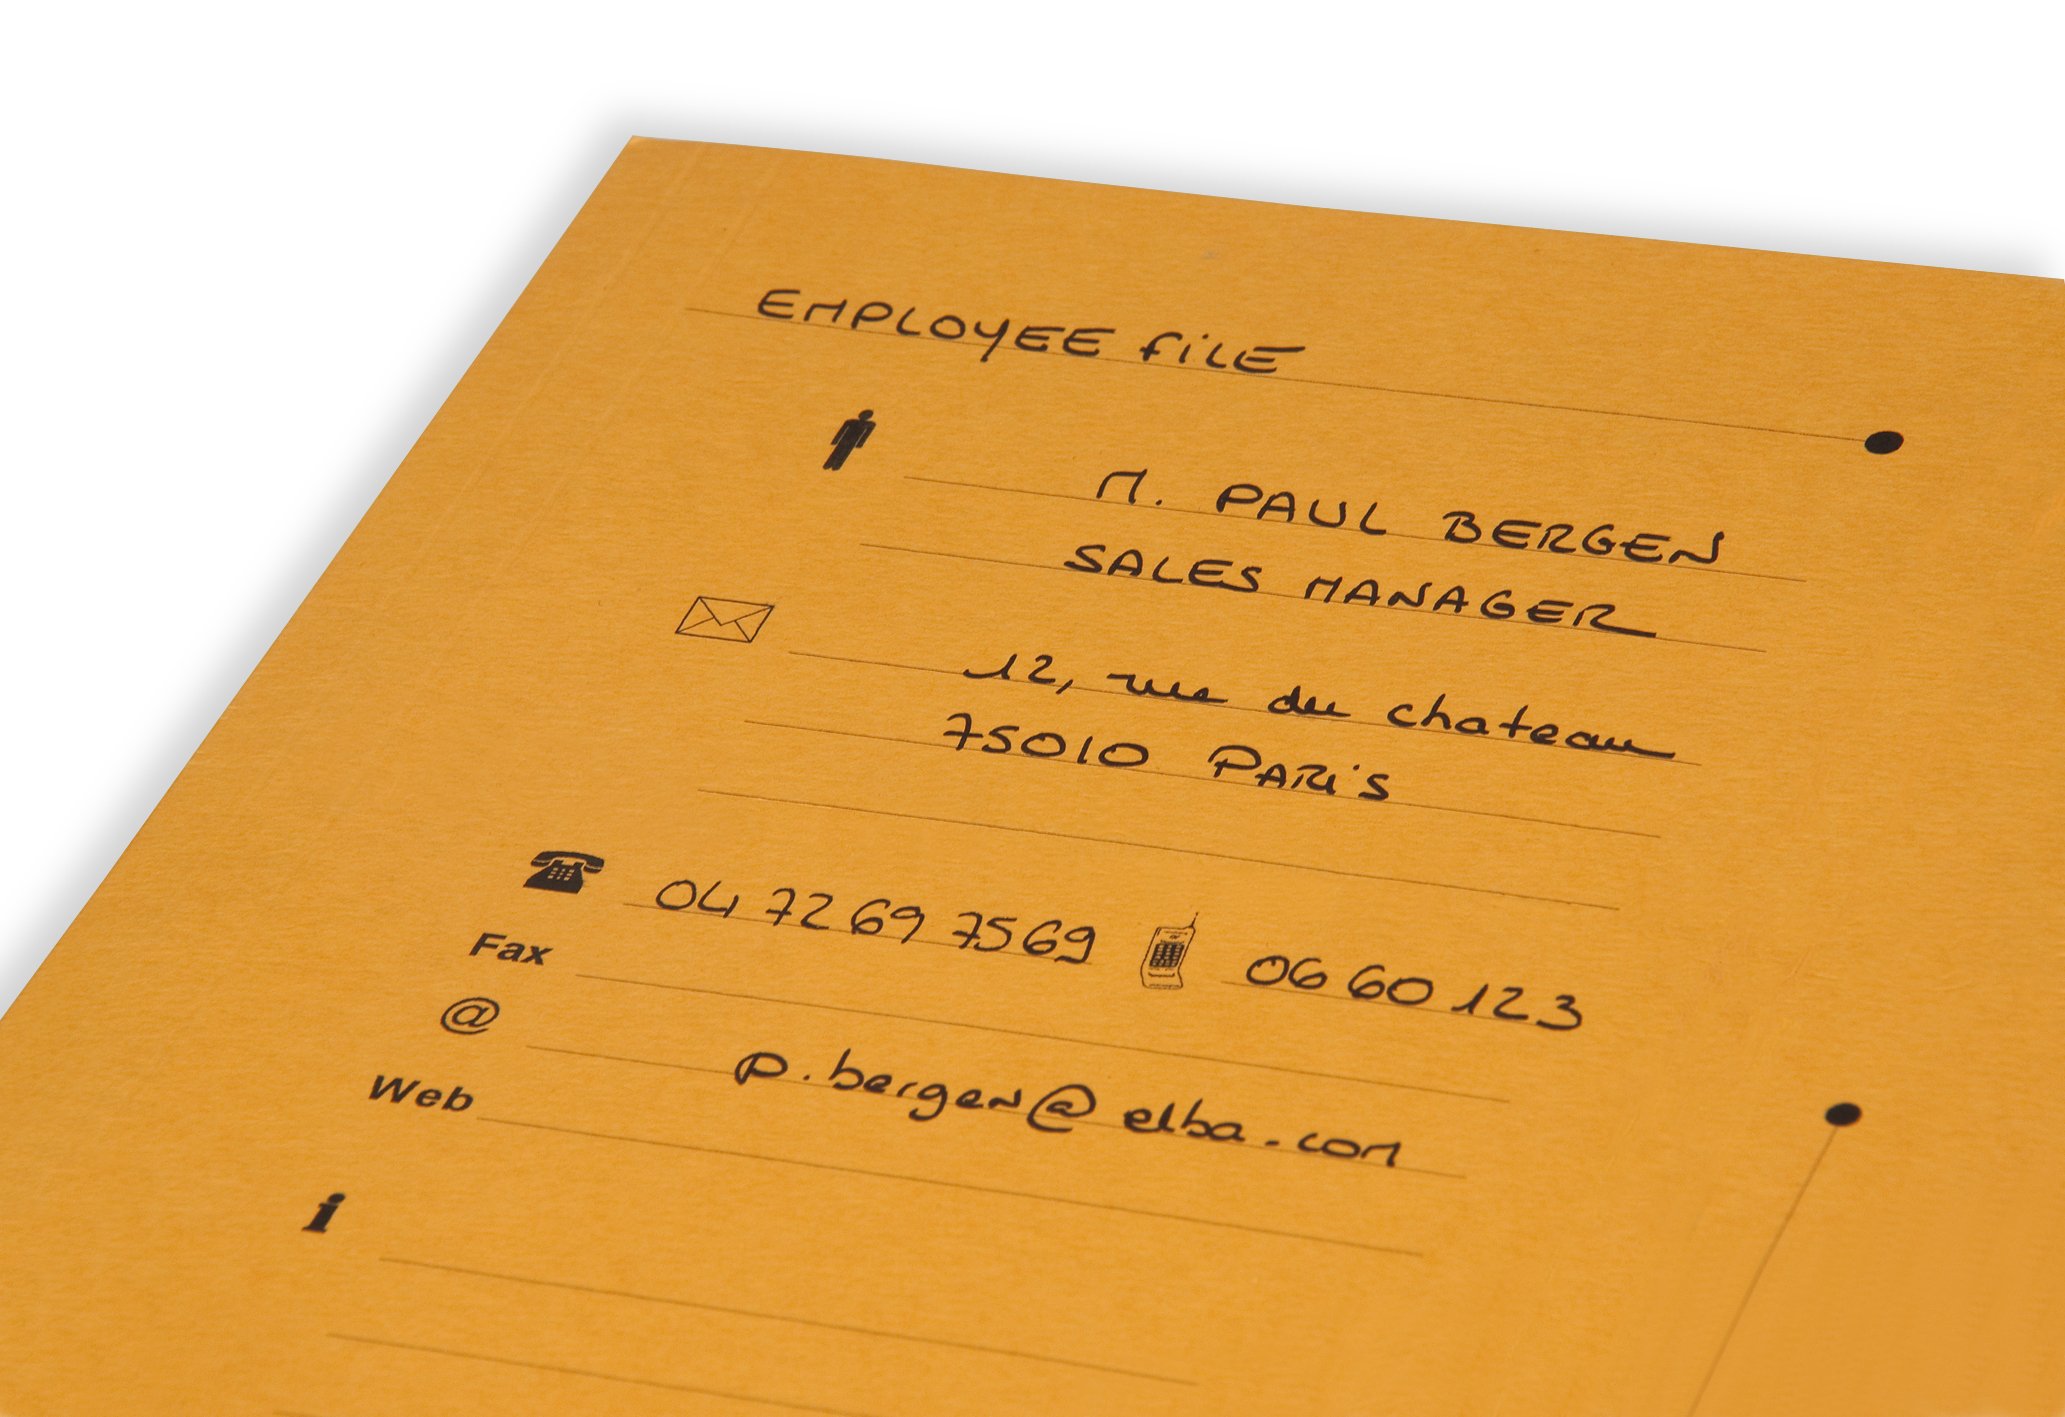 EMPLOYEE FiLE
M. PAUL BERGEN
SALES MANAGER
12, rue du chateau
75010 PARiS
04 72 69 75 69 06 60 12 3
Fax
@ p.bergen@elba.com
Web
i